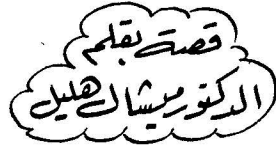 قصة بقلم
الدكتور ميشال هليل